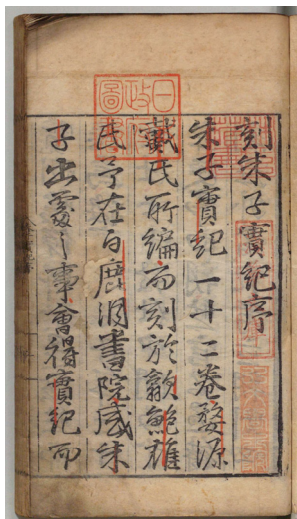 刻朱子實紀序
朱子實紀一十二卷婺源
戴氏所編而刻於歙鮑雄
氏予在白鹿洞書院感朱
子出處之事會得實紀而